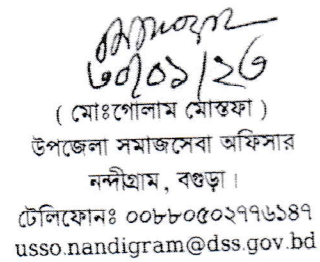 ৩০/০১/২৩
( মোঃগোলাম মোস্তফা )
উপজেলা সমাজসেবা অফিসার
নন্দীগ্রাম, বগুড়া।
টেলিফোনঃ ০০৮৮০৫০২৭৭৬১৪৭
usso.nandigram@dss.gov.bd